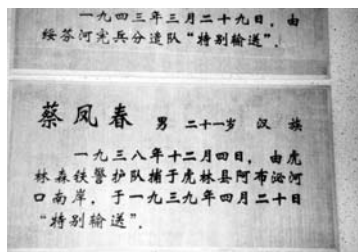 一九四三年三月二十九日，由
绥芬河宪兵分遣队“特别输送”．
蔡凤春 男 二十一岁 汉 族
一九三八年十二月四日，由虎
林森铁警护队捕于虎林县阿布沁河
口南岸，于一九三九年四月二十日
“特别输送”．